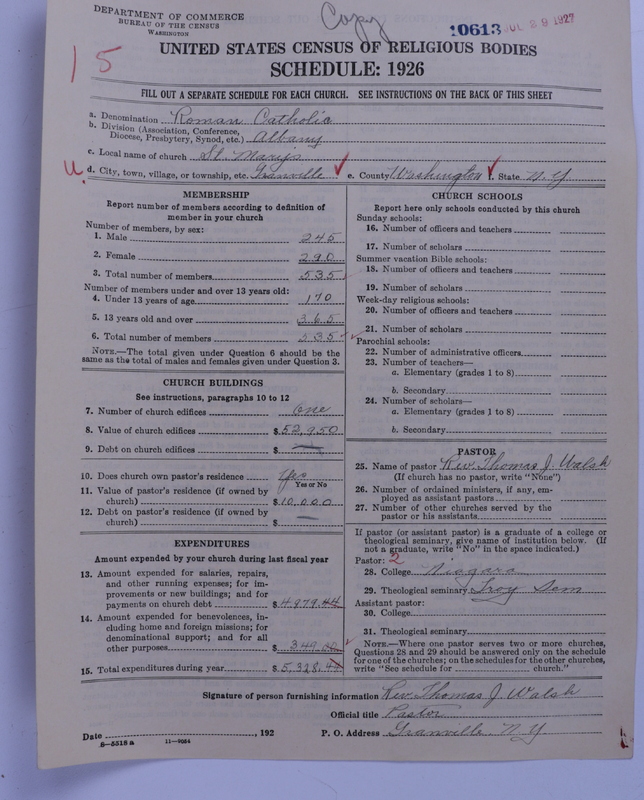 DEPARTMENT OF COMMERCE
BUREAU OF THE CENSUS
WASHINGTON
Copy
10613 JUL 29 1927
15
UNITED STATES CENSUS OF RELIGIOUS BODIES
SCHEDULE: 1926
FILL OUT A SEPARATE SCHEDULE FOR EACH CHURCH. SEE INSTRUCTIONS ON THE BACK OF THIS SHEET
a. Denomination Roman Catholic
b. Division (Association, Conference, Diocese, Presbytery, Synod, etc.) Albany
c. Local name of church St. Mary's
U. d. City, town, village, or township, etc. Granville e. County Washington f. State N.Y.
MEMBERSHIP
Report number of members according to definition of
member in your church
Number of members, by sex:
1. Male 245
2. Female 290
3. Total number of members 535
Number of members under and over 13 years old:
4. Under 13 years of age 170
5. 13 years old and over 365
6. Total number of members 535
NOTE.—The total given under Question 6 should be
same as the total of males and females given under Question 3.
CHURCH BUILDINGS
See instructions, paragraphs 10 to 12
7. Number of church edifices one
8. Value of church edifices $52,950
9. Debt on church edifices $
10. Does church own pastor's residence Yes
Yes or No
11. Value of pastor's residence (if owned by
church) $10,000
12. Debt on pastor's residence (if owned by
church) $ —
EXPENDITURES
Amount expended by your church during last fiscal year
13. Amount expended for salaries, repairs,
and other running expenses; for im-
provements or new buildings; and for
payments on church debt $4979.44
14. Amount expended for benevolences, in-
cluding home and foreign missions; for
denominational support; and for all
other purposes $349.00
15. Total expenditures during year $5,328.44
CHURCH SCHOOLS
Report here only schools conducted by this church
Sunday schools:
16. Number of officers and teachers
17. Number of scholars
Summer vacation Bible schools:
18. Number of officers and teachers
19. Number of scholars
Week-day religious schools:
20. Number of officers and teachers
21. Number of scholars
Parochial schools:
22. Number of administrative officers
23. Number of teachers—
a. Elementary (grades 1 to 8)
b. Secondary
24. Number of scholars—
a. Elementary (grades 1 to 8)
b. Secondary
PASTOR
25. Name of pastor Rev. Thomas J. Walsh
(If church has no pastor, write "None")
26. Number of ordained ministers, if any, em-
ployed as assistant pastors
27. Number of other churches served by the
pastor or his assistants
If pastor (or assistant pastor) is a graduate of a college or
theological seminary, give name of institution below. (If
not a graduate, write "No" in the space indicated.)
Pastor: 2
28. College Niagara
29. Theological seminary Troy Sem
Assistant pastor:
30. College
31. Theological seminary
NOTE.—Where one pastor serves two or more churches,
Questions 28 and 29 should be answered only on the schedule
for one of the churches; on the schedules for the other churches,
write "See schedule for church."
Signature of person furnishing information Rev. Thomas J Walsh
Official title Pastor
Date , 192 P. O. Address Granville N.Y
8—5518 a 11—9034